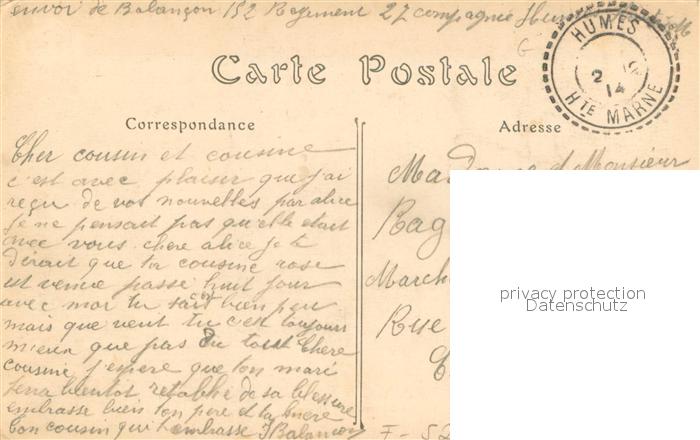 envoi de Balançon 152 Regiment 27 compagnie Humes Hte M
HUMES
2
14
Hte MARNE
Carte Postale
Correspondance
Adresse
Cher cousin et cousine
c'est avec plaisir que j'ai
reçu de vos nouvelles par alice
je ne pensait pas qu'elle etait
avec vous chere alice je te
dirait que ta cousine rose
est venue passe huit jour
avec moi tu sait bien peu
mais que veut tu c'est toujours
mieux que pas du tout Chere
cousine j'espere que ton mari
sera bientot retablie de sa blessure
embrasse bien ton pere et ta mere
ton cousin qui t'embrasse J Balançon
Madame et Monsieur
Rag
March
Rue
privacy protection
Datenschutz
F - 52